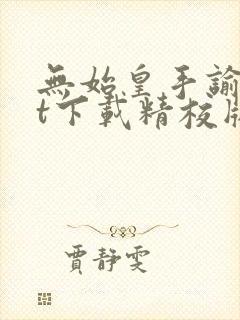 無始皇手諭
t下載精校版
賈靜雯